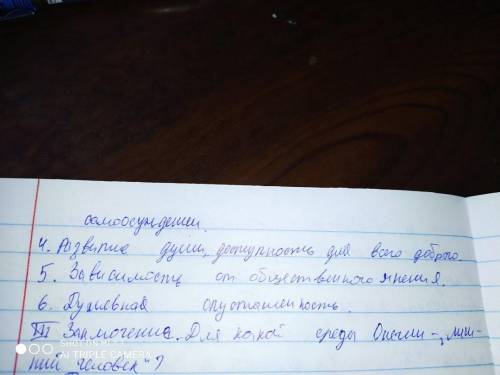 самоосуждении.
4. Развитие души, доступность для всего доброго.
5. Зависимость от общественного мнения.
6. Душевная опустошенность.
III Заключение. Для какой среды Онегин - „лиш-
ний человек"?
SHOT ON
AI TRIPLE CAMERA